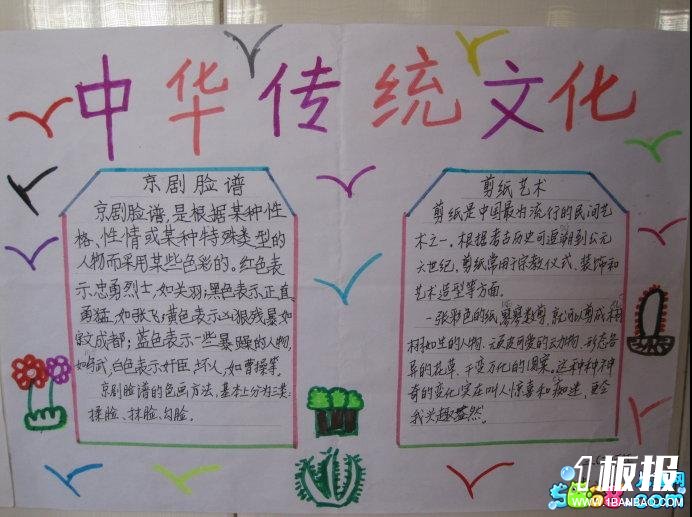 中华传统文化
京剧脸谱
京剧脸谱,是根据某种性
格、性情或某种特殊类型的
人物而采用某些色彩的。红色表
示忠勇烈士,如关羽;黑色表示正直、
勇猛,如张飞;黄色表示凶狠残暴如
宇文成都;蓝色表示一些暴躁的人物,
白色表示奸臣、坏人,如曹操等。
京剧脸谱的色画方法,基本上分为三类:
揉脸、抹脸、勾脸。
剪纸艺术
剪纸是中国最为流行的民间艺
术之一,根据考古历史可追溯到公元
六世纪,剪纸常用于宗教仪式、装饰和
艺术造型等方面。
一张彩色的纸,寥寥数剪,就可以剪成栩
栩如生的人物、可爱的动物、形态各
异的花草、千变万化的图案。这种种神
奇的变化实在叫人惊喜和痴迷,更令
我兴趣盎然。
1板报
WWW.1BANBAO.COM